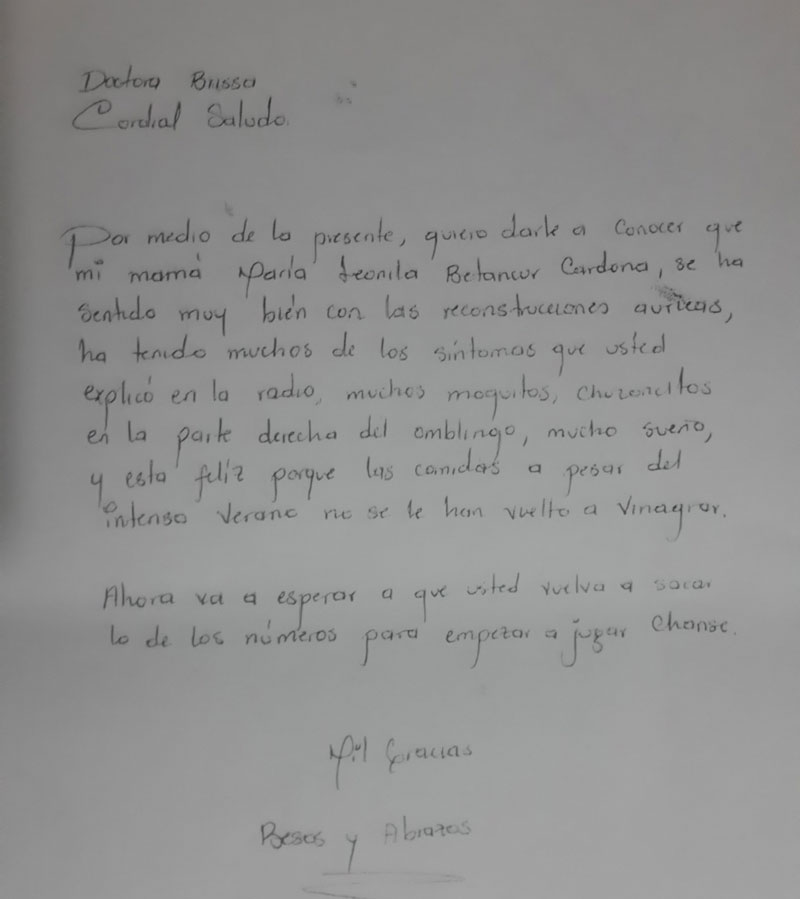 Doctora Brissa
Cordial Saludo.
Por medio de la presente, quiero darle a Conocer que
mi mamá María Leonila Betancur Cardona, se ha
Sentido muy bién con las reconstrucciones auricas,
ha tenido muchos de los síntomas que usted
explicó en la radio, muchos moquitos, chuzoncitos
en la parte derecha del omblingo, mucho sueño,
y esta feliz porque las comidas a pesar del
intenso verano no se le han vuelto a Vinagrar.
Ahora va a esperar a que usted vuelva a sacar
lo de los números para empezar a jugar Chanse.
Mil Gracias
Besos y Abrazos